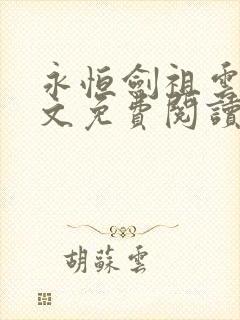 永恒劍祖雲
文免費閱讀
胡蘇雲